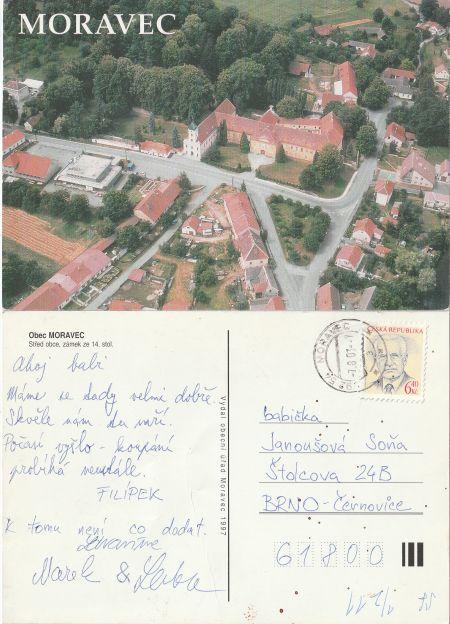 MORAVEC
Obec MORAVEC
Střed obce, zámek ze 14. stol.
Ahoj babi
Máme se tady velmi dobře.
Skvěle nám tu vaří.
Počasí vyšlo - koupání
probíhá neustále.
FILÍPEK
K tomu není co dodat.
Zdravíme
Marek &
Vydal obecní úřad Moravec 1997
MORAVEC
ČESKÁ REPUBLIKA
6,40
Kč
babička
Janoušová Soňa
Štolcova 24B
BRNO-Černovice
61800